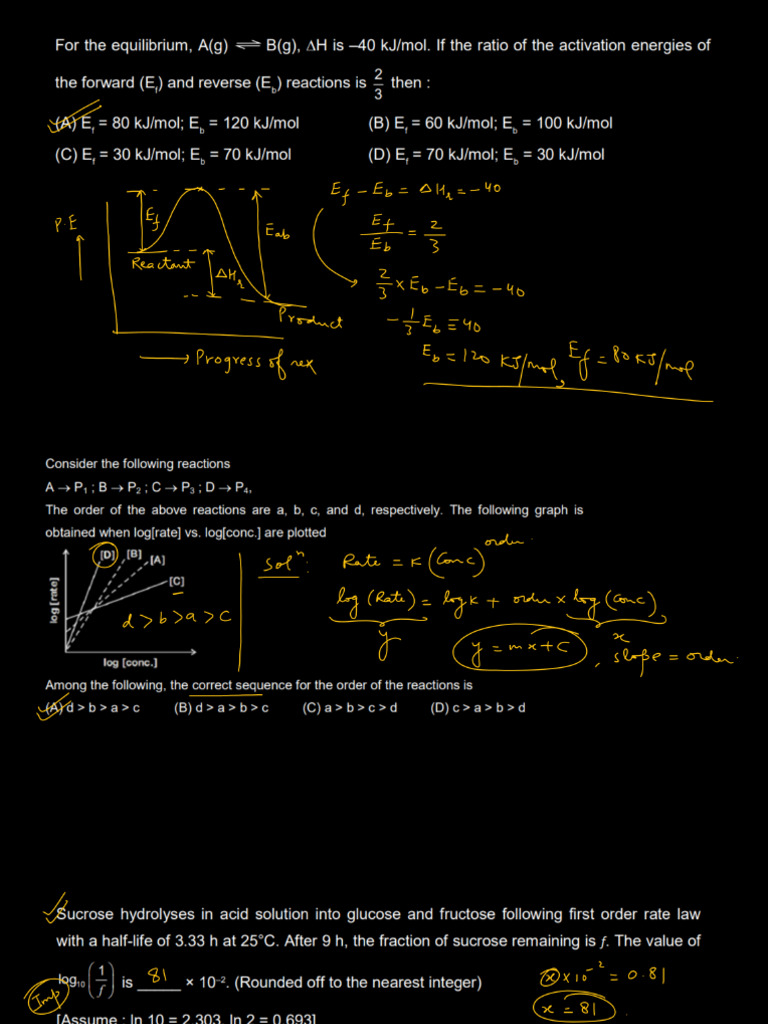 For the equilibrium, A(g) ⇌ B(g), ∆H is –40 kJ/mol. If the ratio of the activation energies of
the forward (E_f) and reverse (E_b) reactions is 2/3 then :
(A) E_f = 80 kJ/mol; E_b = 120 kJ/mol (B) E_f = 60 kJ/mol; E_b = 100 kJ/mol
(C) E_f = 30 kJ/mol; E_b = 70 kJ/mol (D) E_f = 70 kJ/mol; E_b = 30 kJ/mol
P.E
E_f
E_ab
Reactant
∆H_r
Product
→ Progress of rex
E_f – E_b = ∆H_r = –40
E_f/E_b = 2/3
2/3 × E_b – E_b = –40
–1/3 E_b = 40
E_b = 120 KJ/mol, E_f = 80 KJ/mol
Consider the following reactions
A → P₁ ; B → P₂ ; C → P₃ ; D → P₄,
The order of the above reactions are a, b, c, and d, respectively. The following graph is
obtained when log[rate] vs. log[conc.] are plotted
[D] [B] [A]
[C]
log [rate]
d > b > a > c
log [conc.]
Solⁿ: Rate = K (Conc)^order
log (Rate) = log K + order × log (Conc)
y x
y = mx + c, slope = order
Among the following, the correct sequence for the order of the reactions is
(A) d > b > a > c (B) d > a > b > c (C) a > b > c > d (D) c > a > b > d
Sucrose hydrolyses in acid solution into glucose and fructose following first order rate law
with a half-life of 3.33 h at 25°C. After 9 h, the fraction of sucrose remaining is f. The value of
log₁₀(1/f) is 81 × 10⁻². (Rounded off to the nearest integer)
Imp
x × 10⁻² = 0.81
x = 81
[Assume : ln 10 = 2.303, ln 2 = 0.693]